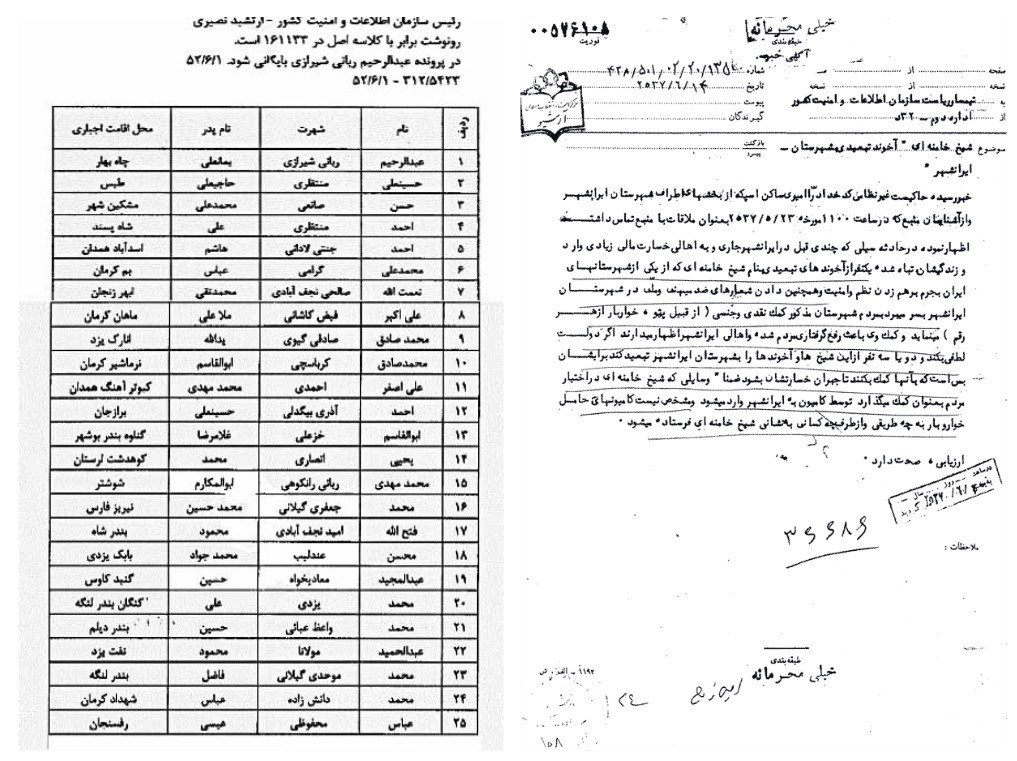 رئیس سازمان اطلاعات و امنیت کشور - ارتشبد نصیری
رونوشت برابر با کلاسه اصل در ۱۶۱۱۳۳ است.
در پرونده عبدالرحیم ربانی شیرازی بایگانی شود. ۵۲/۶/۱
۳۱۲/۵۴۲۳ - ۵۲/۶/۱
ردیف نام شهرت نام پدر محل اقامت اجباری
۱ عبدالرحیم ربانی شیرازی یمانعلی چاه بهار
۲ حسینعلی منتظری حاجیعلی طبس
۳ حسن صانعی محمدعلی مشکین شهر
۴ احمد منتظری علی شاه پسند
۵ احمد جنتی لادانی هاشم اسدآباد همدان
۶ محمدعلی گرامی عباس بم کرمان
۷ نعمت الله صالحی نجف آبادی محمدتقی ابهر زنجان
۸ علی اکبر فیض کاشانی ملا علی ماهان کرمان
۹ محمد صادق صادقی گیوی یدالله انارک یزد
۱۰ محمدصادق کرباسچی ابوالقاسم نرماشیر کرمان
۱۱ علی اصغر احمدی محمد مهدی کبوتر آهنگ همدان
۱۲ احمد آذری بیگدلی حسینعلی برازجان
۱۳ ابوالقاسم خزعلی غلامرضا گناوه بندر بوشهر
۱۴ یحیی انصاری محمد کوهدشت لرستان
۱۵ محمد مهدی ربانی رانکوهی ابوالمکارم شوشتر
۱۶ محمد جعفری گیلانی محمد حسین نیریز فارس
۱۷ فتح الله امید نجف آبادی محمود بندر شاه
۱۸ محسن عندلیب محمد جواد بابک یزدی
۱۹ عبدالمجید معادیخواه حسین گنبد کاوس
۲۰ محمد یزدی علی کنگان بندر لنگه
۲۱ محمد واعظ عبائی حسین بندر دیلم
۲۲ عبدالحمید مولانا محمود تفت یزد
۲۳ محمد موحدی گیلانی فاضل بندر لنگه
۲۴ محمد دانش زاده عباس شهداد کرمان
۲۵ عباس محفوظی عیسی رفسنجان
خیلی محرمانه
طبقه بندی
۰۰۵۷۶۱۰۸
فوریت
آگهی خبر
صفحه از شماره
نسخه از نسخه تاریخ ۲۵۳۷/۶/۱۴
به تیمسار ریاست سازمان اطلاعات و امنیت کشور پیوست
از اداره دوم - ۳۲۰ گیرندگان
موضوع شیخ خامنه ای " آخوند تبعیدی بشهرستان - بازگشت
ایرانشهر " پیرو
خبر رسیده حاکیست غیرنظامی کدخدا درا امیری ساکن اسپکه از بخشهای اطراف شهرستان ایرانشهر
و از آشنایان منبع که در ساعت ۱۱۰۰ مورخه ۲۵۳۷/۵/۲۳ بعنوان ملاقات با منبع تماس داشته
اظهار نموده در حادثه سیلی که چندی قبل در ایرانشهر جاری و به اهالی خسارت مالی زیادی وارد
و زندگیشان تباه شده یکنفر از آخوندهای تبعیدی بنام شیخ خامنه ای که از یکی از شهرستانهای
ایران بجرم برهم زدن نظم و امنیت و همچنین دادن شعارهای ضد میهنی و ملی در شهرستان
ایرانشهر بسر میبرد بمردم شهرستان مذکور کمک نقدی و جنسی ( از قبیل پتو ، خواربار از هر
رقم ) مینماید و کمک وی باعث رفع گرفتاری مردم شده و اهالی ایرانشهر اظهار میدارند اگر دولت
لطفی بکند و دو یا سه نفر از این شیخ ها و آخوندها را بشهرستان ایرانشهر تبعید کند برایشان
بس است که بآنها کمک بکنند تا جبران خسارتشان بشود ضمنا" وسایلی که شیخ خامنه ای در اختیار
مردم بعنوان کمک میگذارد توسط کامیون به ایرانشهر وارد میشود و مشخص نیست کامیونهای حامل
خواروبار به چه طریقی و از طرف چه کسانی به نشانی شیخ خامنه ای فرستاده میشود .
ارزیابی ، صحت دارد .
۳۶۶۸۶
ملاحظات :
طبقه بندی
خیلی محرمانه